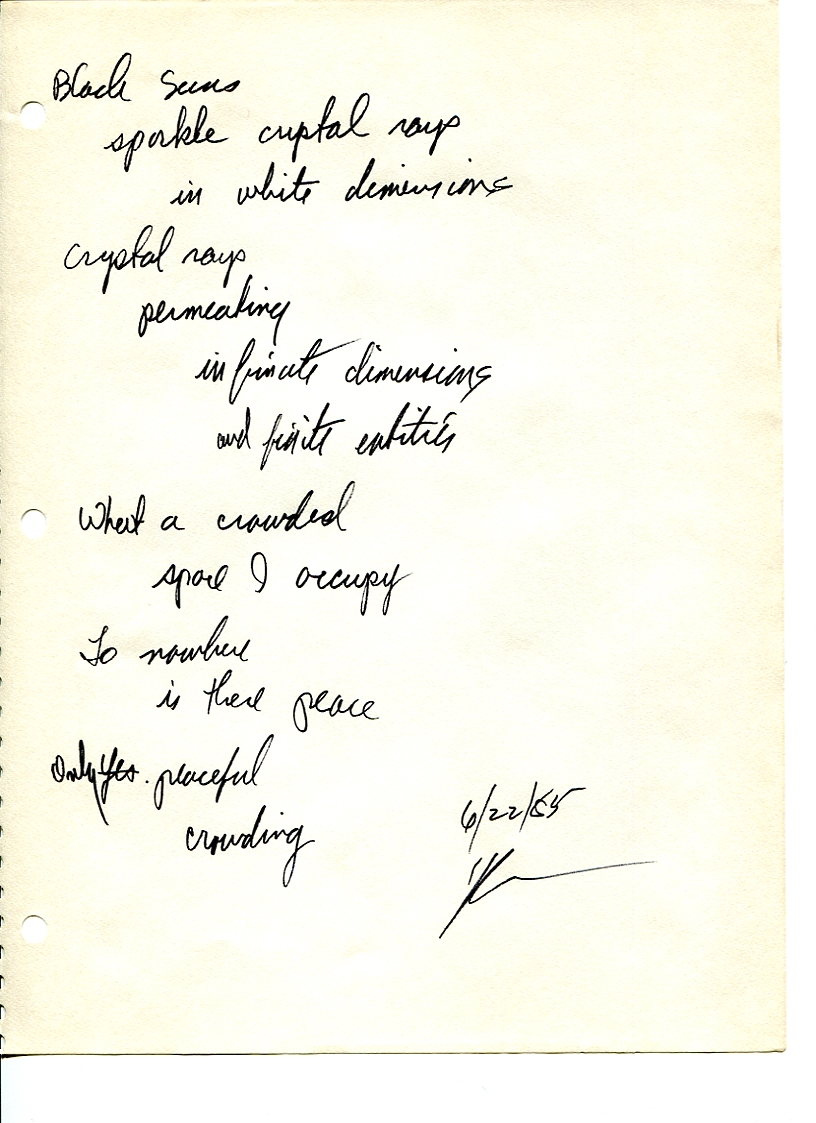 Black Suns
sparkle crystal rays
in white dimensions
Crystal rays
permeating
infinate dimensions
and finite entities
What a crowded
space I occupy
To nowhere
is there peace
Only Yes. peaceful
crowding
6/22/85